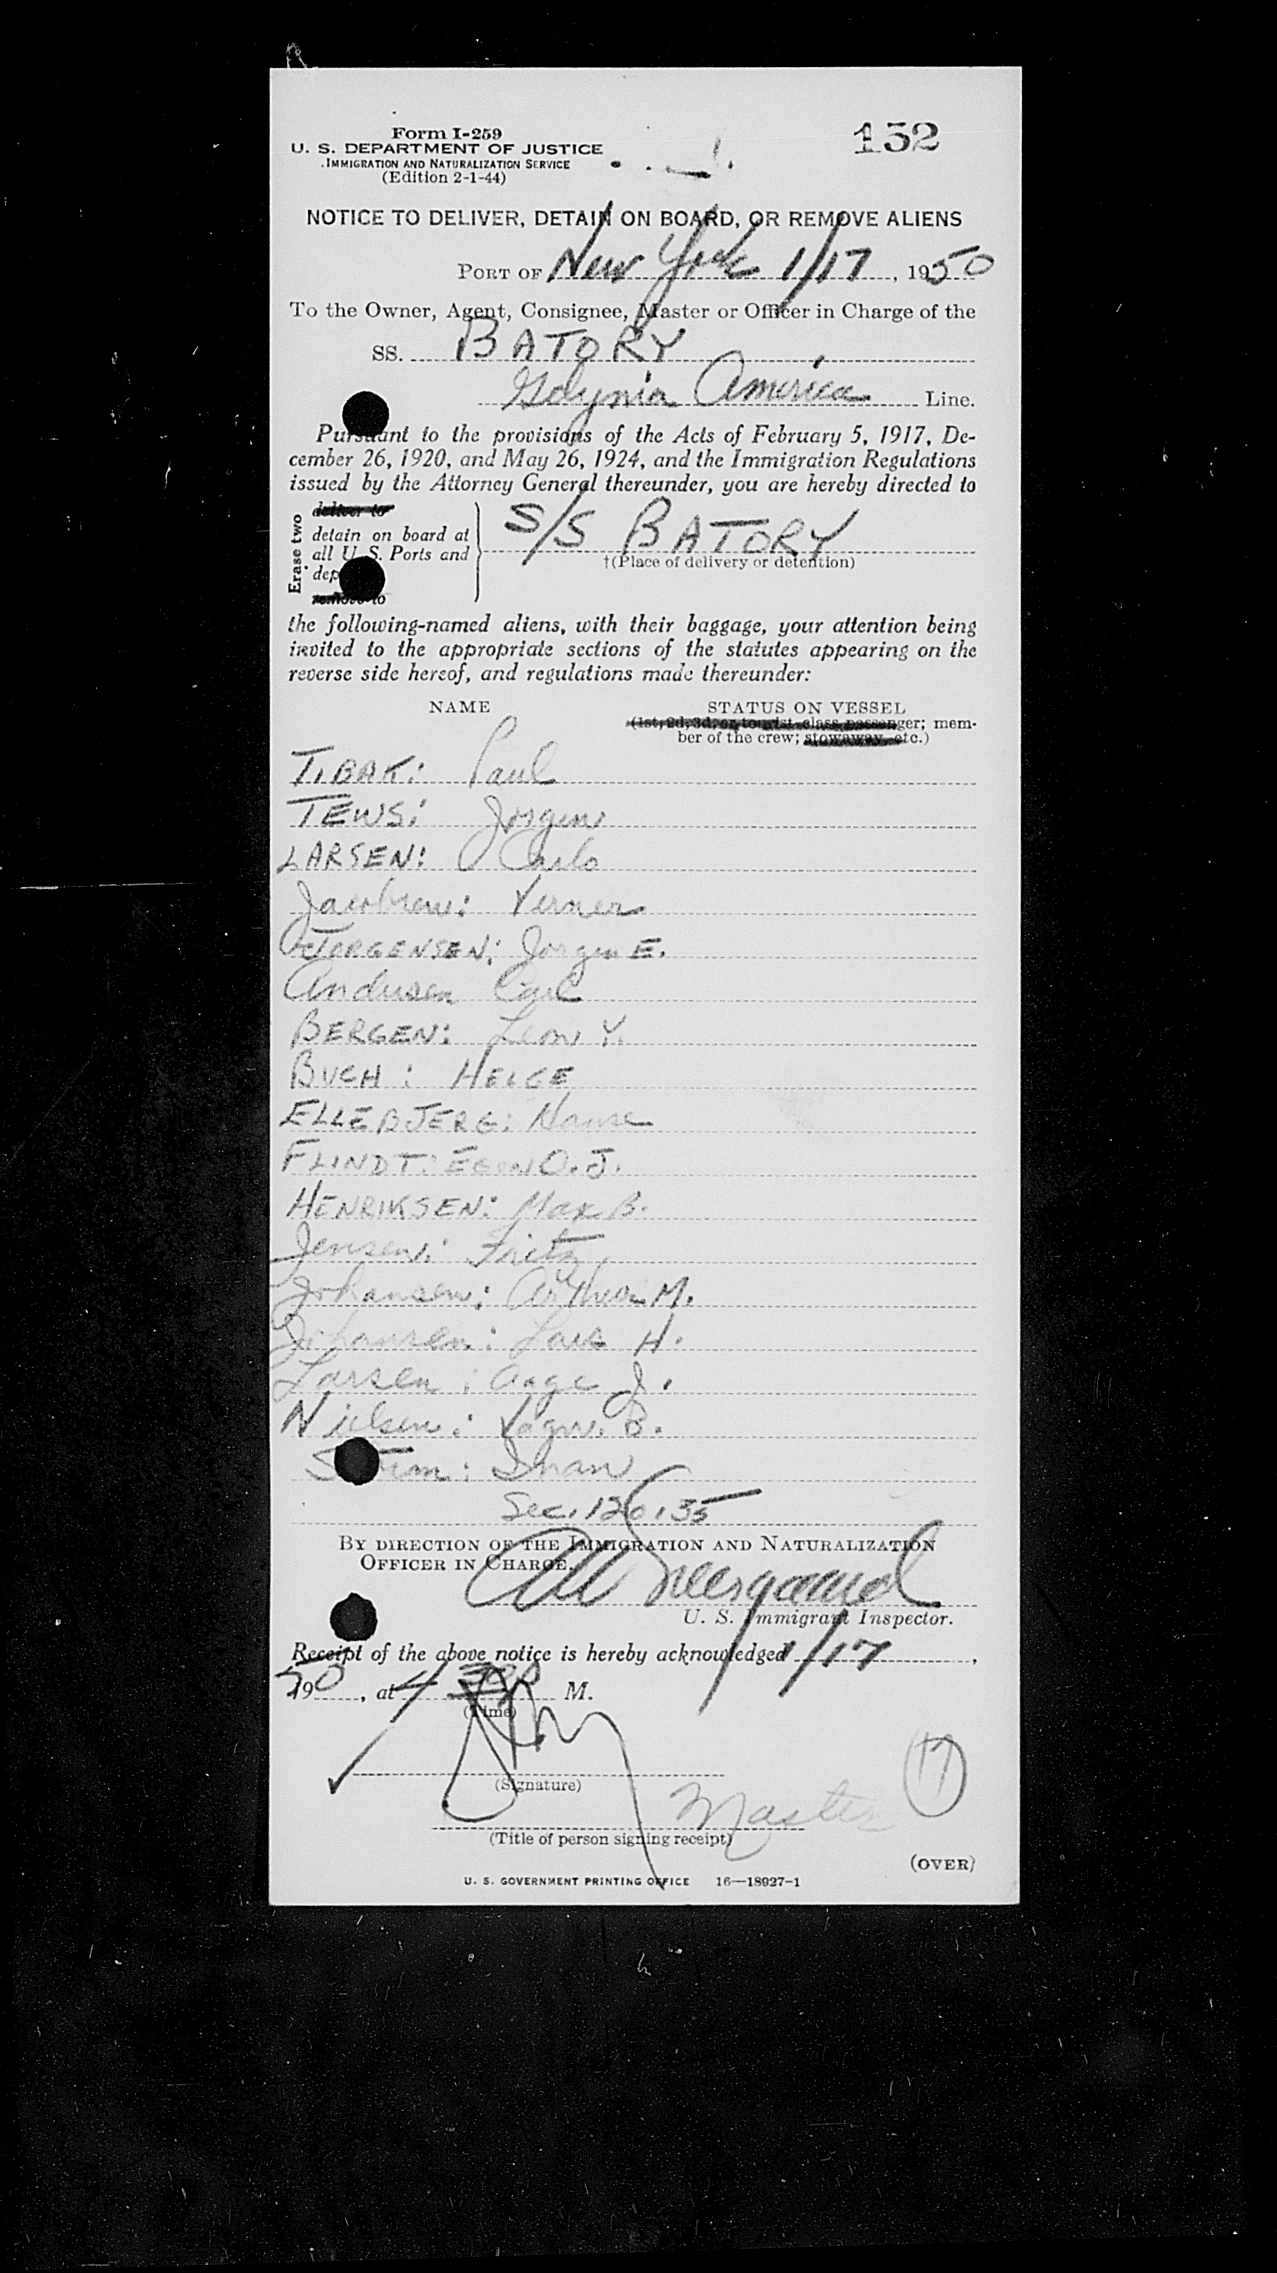 Form I-259
U. S. DEPARTMENT OF JUSTICE
IMMIGRATION AND NATURALIZATION SERVICE
(Edition 2-1-44)
132
NOTICE TO DELIVER, DETAIN ON BOARD, OR REMOVE ALIENS
PORT OF New York 1/17, 1950
To the Owner, Agent, Consignee, Master or Officer in Charge of the
SS. BATORY
Gdynia America Line.
Pursuant to the provisions of the Acts of February 5, 1917, De-
cember 26, 1920, and May 26, 1924, and the Immigration Regulations
issued by the Attorney General thereunder, you are hereby directed to
Erase two
deliver to
detain on board at
all U. S. Ports and
dep
remove to
S/S BATORY
†(Place of delivery or detention)
the following-named aliens, with their baggage, your attention being
invited to the appropriate sections of the statutes appearing on the
reverse side hereof, and regulations made thereunder:
NAME
STATUS ON VESSEL
(1st, 2d, 3d, or tourist class passenger; mem-
ber of the crew; stowaway, etc.)
TIBAK: Paul
TEWS: Jorgen
LARSEN: Carlo
Jacobsen: Verner
JORGENSEN: Jorgen E.
Andersen Carl
BERGEN: Leon Y.
BUCH: HELGE
ELLEBJERG: Hanse
FLINDT: EGON O. J.
HENRIKSEN: Max B.
Jensen: Fritz
Johansen: Arthur M.
Johansen: H.
Larsen: Aage J.
Nielsen: B.
Sec. 120.35
BY DIRECTION OF THE IMMIGRATION AND NATURALIZATION
OFFICER IN CHARGE.
U. S. Immigrant Inspector.
Receipt of the above notice is hereby acknowledged 1/17,
1950, at 4 M.
(Time)
(Signature)
Master
17
(Title of person signing receipt)
(OVER)
U. S. GOVERNMENT PRINTING OFFICE 16—18927-1